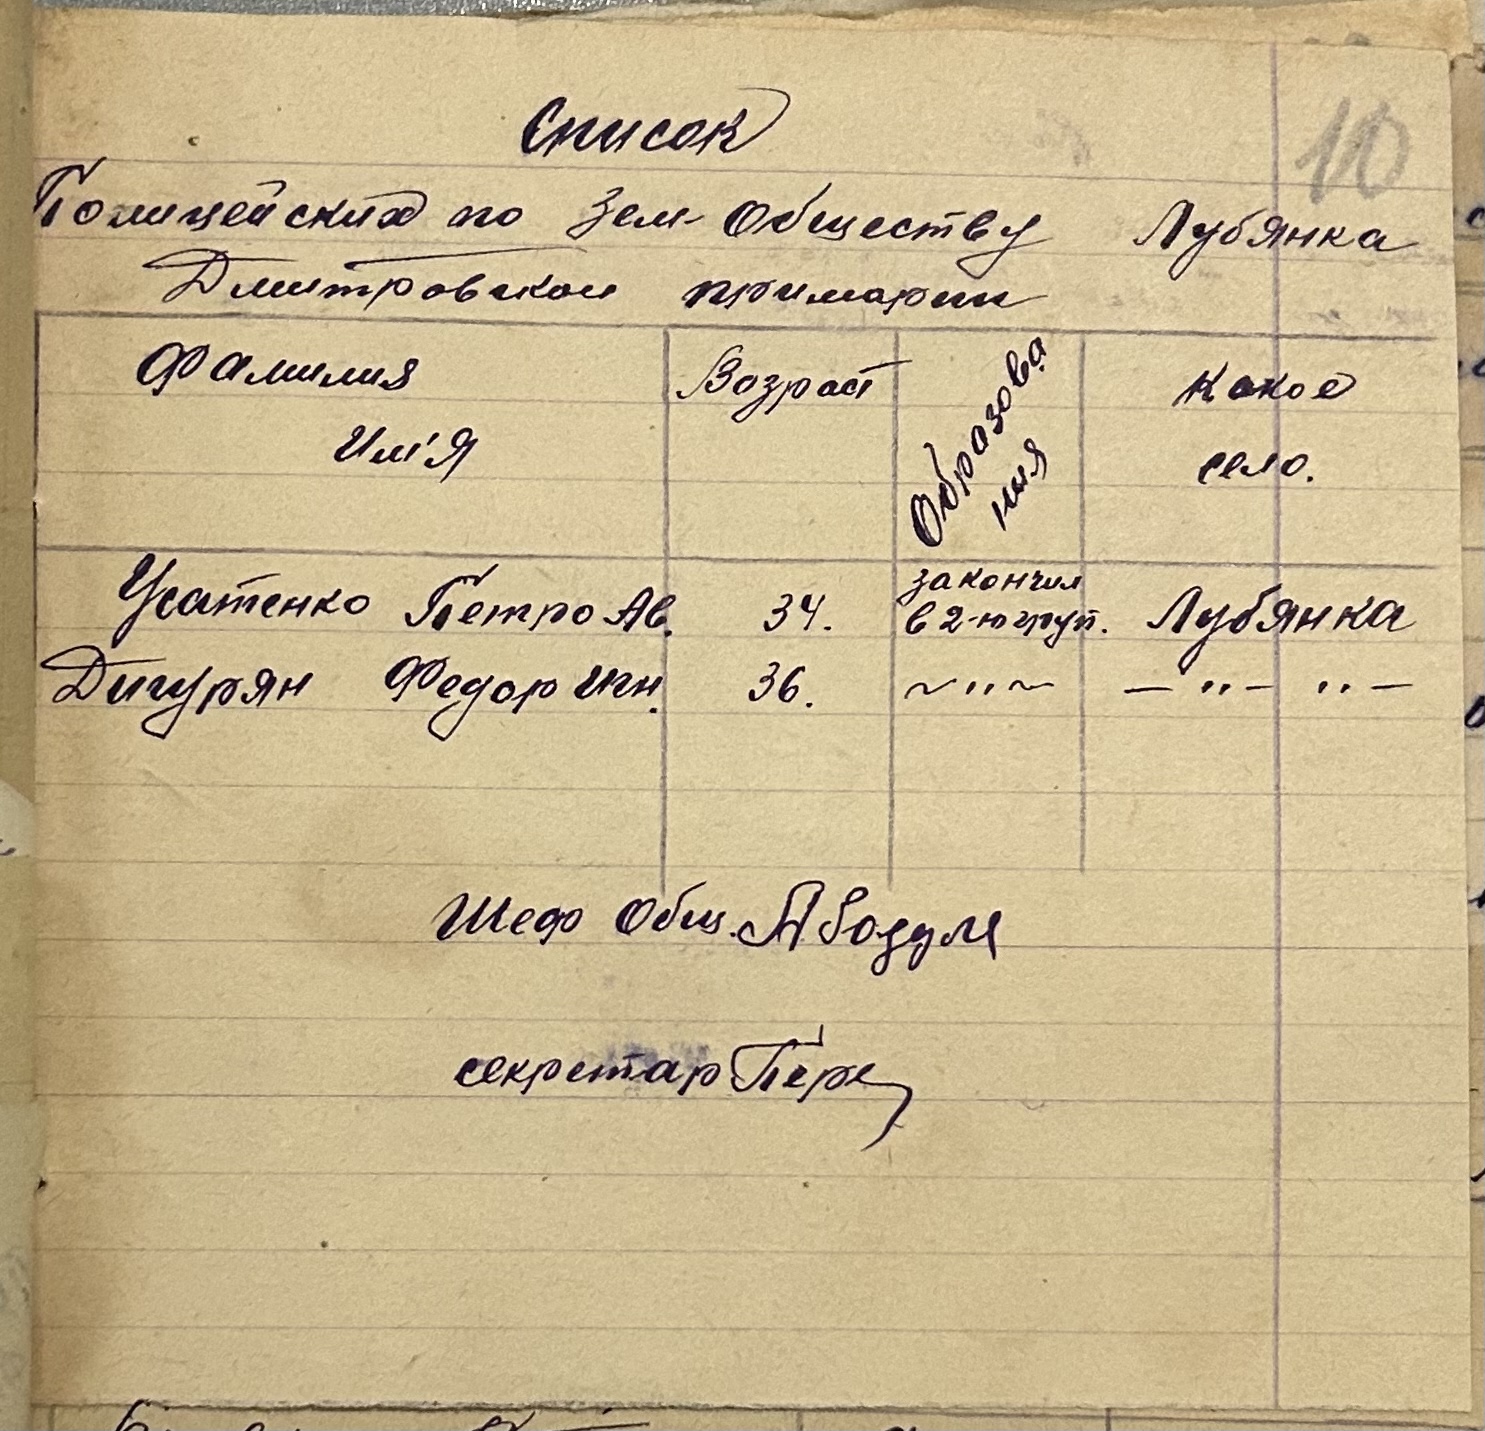 10
Список
Полицейских по Зем Обществу Лубянка
Дмитровской примарии
Фамилия Им'я
Возраст
Образова ния
какое село.
Усатенко Петро Ав. 34. закончил в 2-ю груп. Лубянка
Дигурян Федор Ин. 36. ~"~ — " — " —
Шеф Общ.
секретар